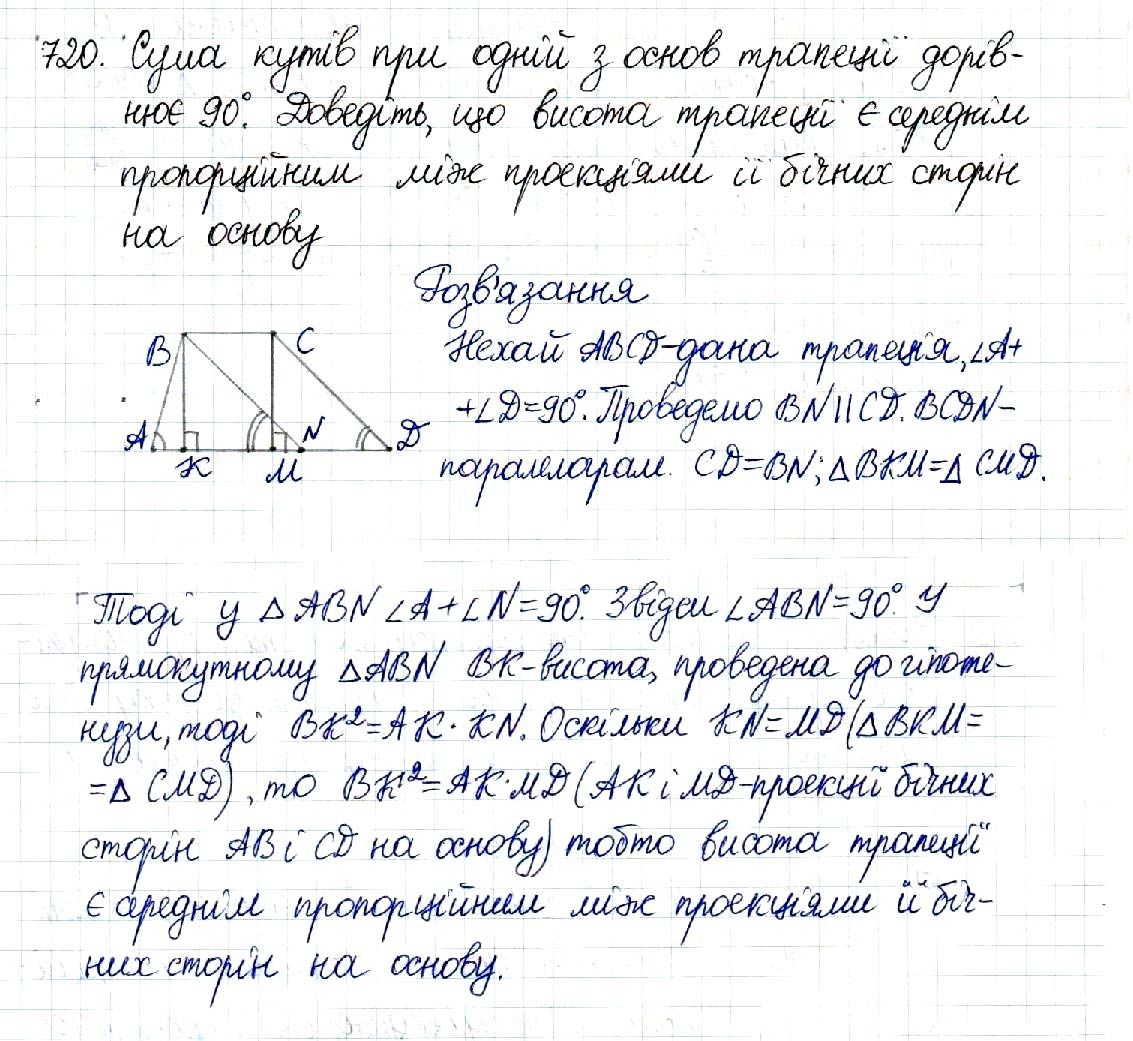 720. Сума кутів при одній з основ трапеції дорів-
нює 90°. Доведіть, що висота трапеції є середнім
пропорційним між проекціями її бічних сторін
на основу
Розв'язання
B C
Нехай ABCD-дана трапеція, ∠A+
+∠D=90°. Проведемо BN||CD. BCDN-
A K M N D
паралеларам. CD=BN; △BKM=△CMD.
Тоді у △ABN ∠A+∠N=90°. Звідси ∠ABN=90°. У
прямокутному △ABN BK-висота, проведена до гіпоте-
нузи, тоді BK²=AK·KN. Оскільки KN=MD(△BKM=
=△CMD), то BK²=AK·MD(AK і MD-проекції бічних
сторін AB і CD на основу) тобто висота трапеції
є середнім пропорційним між проекціями її біч-
них сторін на основу.